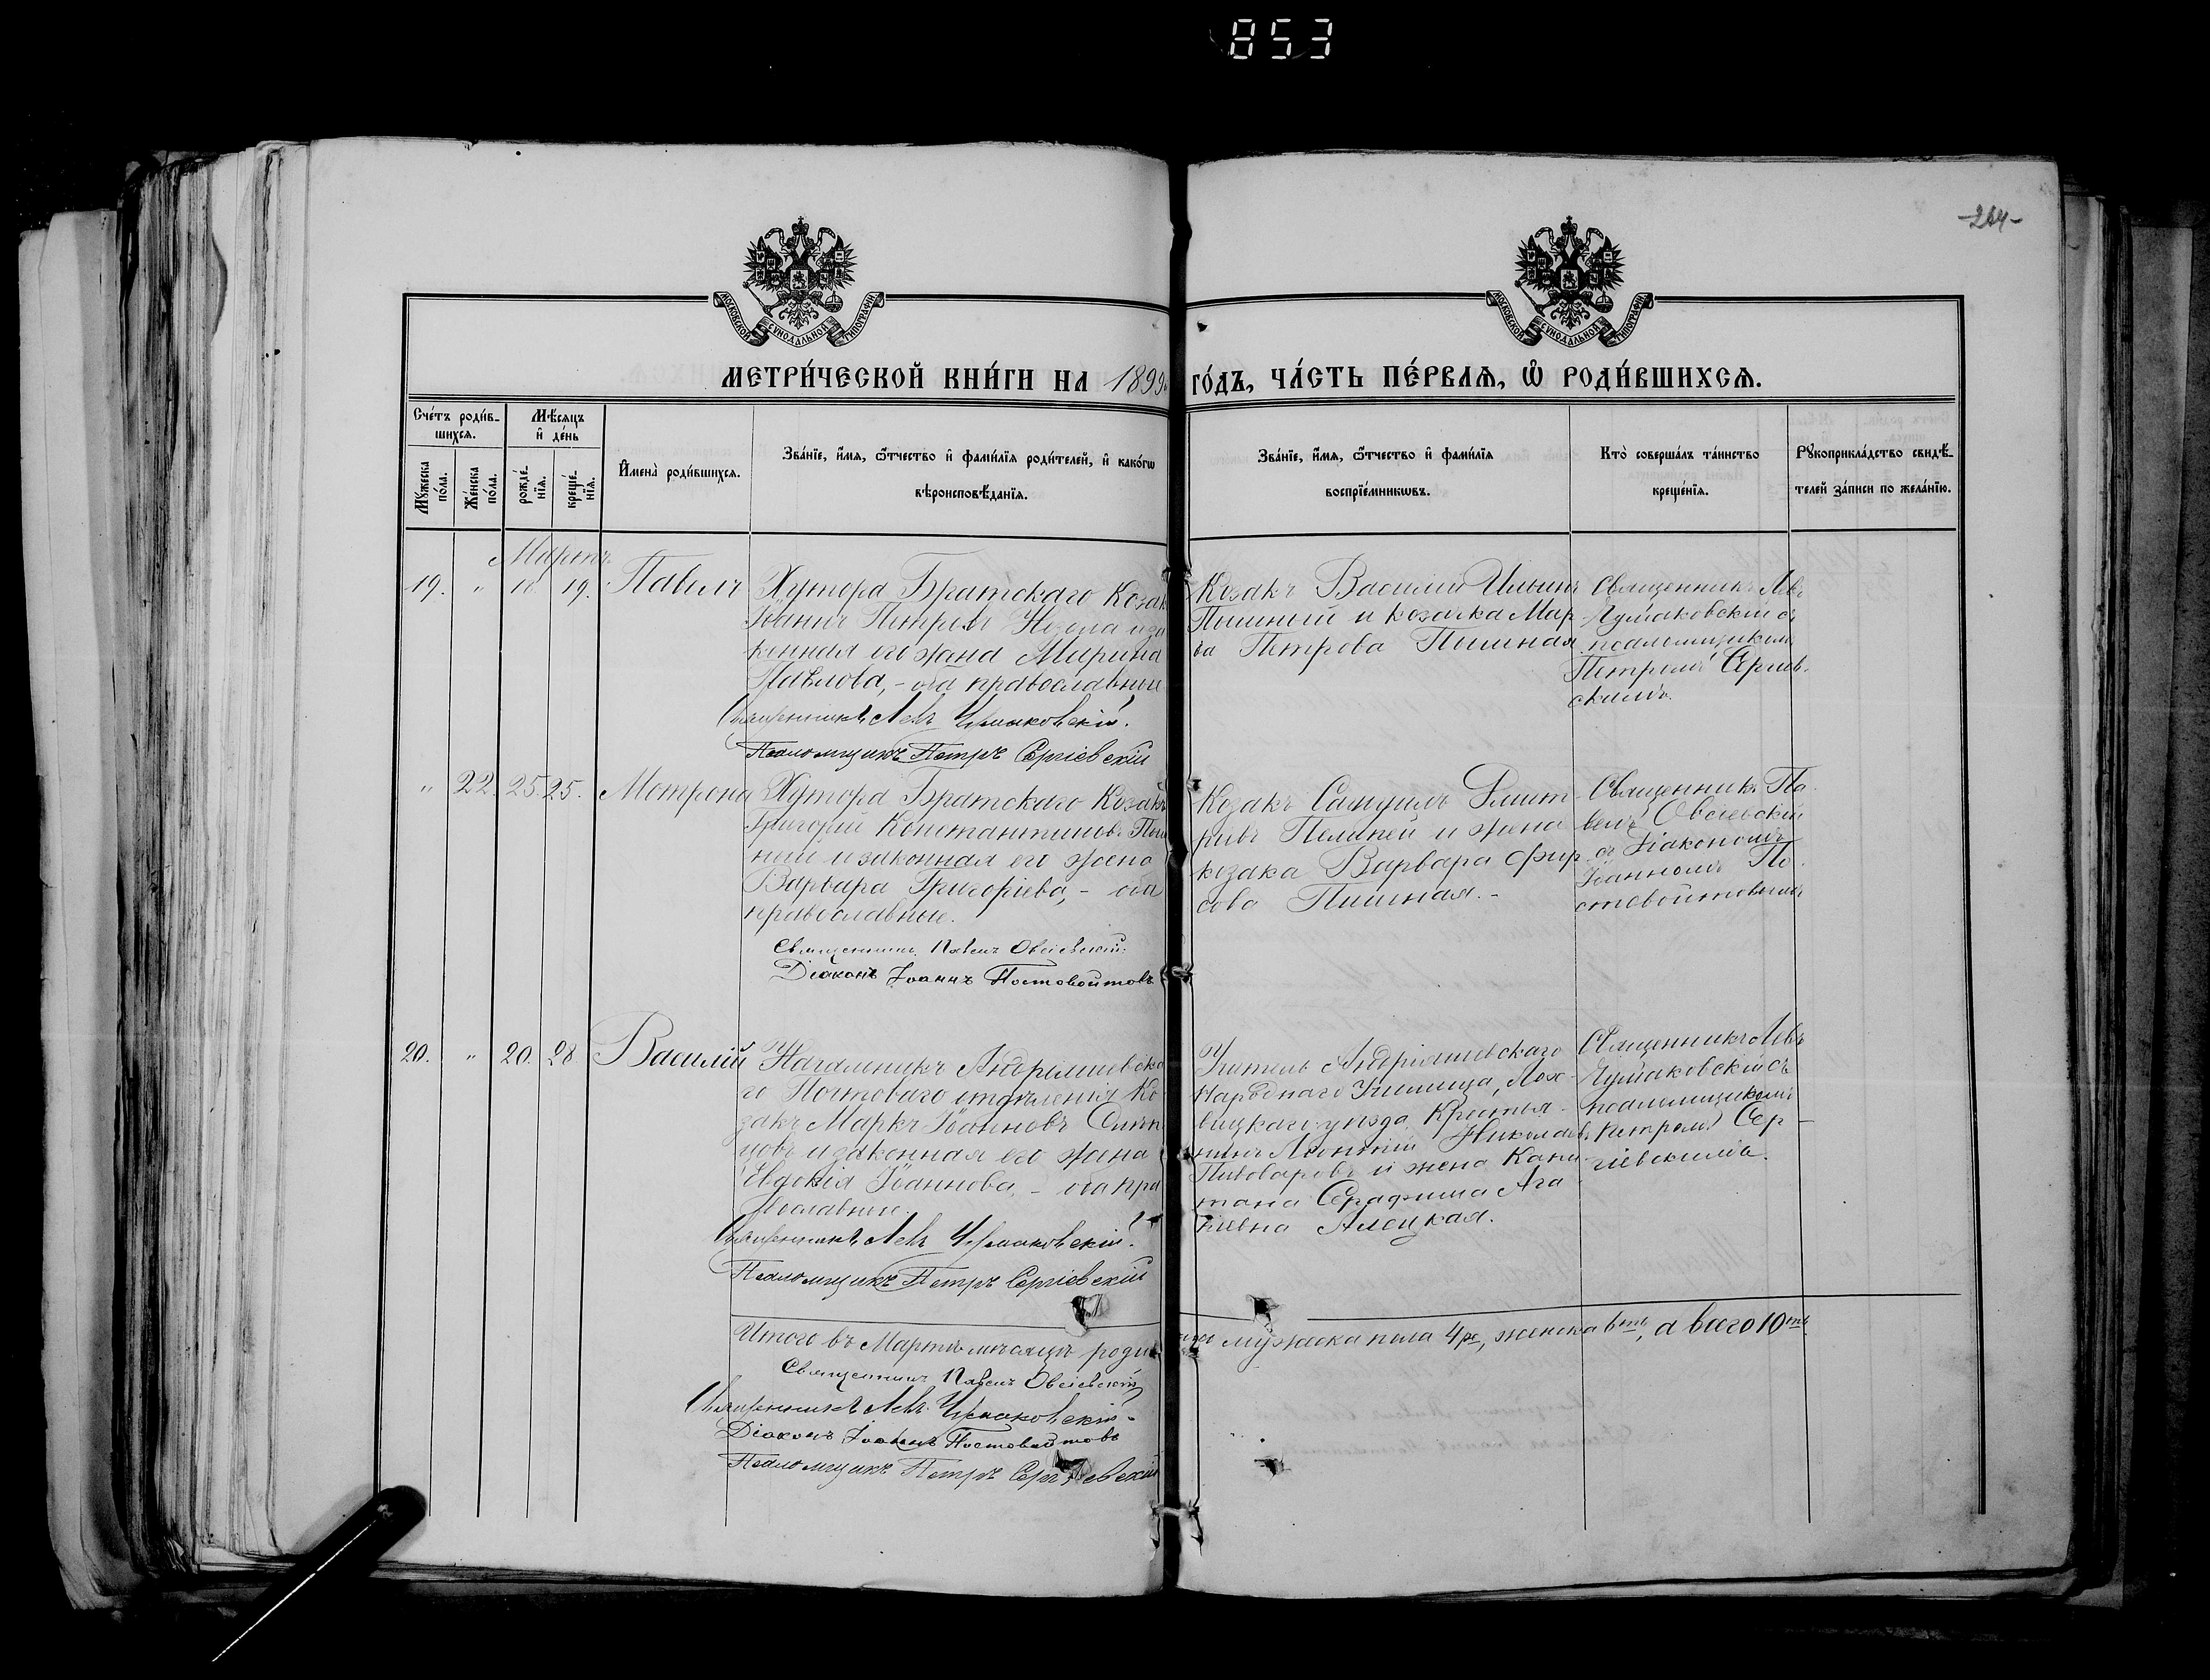 853
-264-
МОСКОВСКОЙ СѴНОДАЛЬНОЙ ТИПОГРАФІИ
МОСКОВСКОЙ СѴНОДАЛЬНОЙ ТИПОГРАФІИ
МЕТРИ́ЧЕСКОЙ КНИ́ГИ НА 1899 ГО́ДЪ, ЧА́СТЬ ПЕ́РВАЯ, Ѽ РОДИ́ВШИХСѦ.
Сче́тъ роди́в-
шихсѧ.
Мѣ́сѧцъ
и҆ де́нь
Мꙋ́жеска
по́ла.
Же́нска
по́ла.
рожде́-
нїѧ.
креще́-
нїѧ.
И҆мена̀ роди́вшихсѧ.
Зва́нїе, и҆́мѧ, ѻ҆́тчество и҆ фами́лїѧ роди́телей, и҆ како́гѡ
вѣроисповѣ́данїѧ.
Зва́нїе, и҆́мѧ, ѻ҆́тчество и҆ фами́лїѧ
воспрїе́мникѡвъ.
Кто̀ соверша́лъ та́инство
креще́нїѧ.
Рꙋкоприкла́дство свидѣ́-
телей за́писи по жела́нїю.
Мартъ
19. " 18 19. Павелъ
Хутора Братскаго Козакъ
Іоаннъ Петровъ и за
конная его жена Марина
Павлова, - оба православные
Священникъ Левъ Чумаковскій.
Псаломщикъ Петръ Сергіевскій
Козакъ Василій Ильинъ
Пышный и козачка Мар-
ѳа Петрова Пышная
Священникъ Левъ
Чумаковскій съ
псаломщикомъ
Петромъ Сергіев-
скимъ.
" 22. 25. 25. Мотрона
Хутора Братскаго Козакъ
Григорій Константиновъ Пыш
ный и законная его жена
Варвара Григоріева, - оба
православные.
Священникъ Павелъ Овсіевскій:
Діаконъ Іоаннъ Постовойтовъ
Козакъ Самуилъ Дмит-
ріевъ и жена
козака Варвара Фир-
сова Пышная. -
Священникъ Па-
велъ Овсіевскій
съ Діакономъ
Іоанномъ По-
стовойтовымъ
20. " 20. 28 Василій
Начальникъ Андреяшевска
го Почтоваго отдѣленія Ко
закъ Маркъ Іоанновъ
и законная его жена
Евдокія Іоаннова, - оба пра
вославные.
Священникъ Левъ Чумаковскій.
Псаломщикъ Петръ Сергіевскій
Учитель Андріяшевскаго
Народнаго Училища, Лох-
вицкаго уѣзда, Крестья-
нинъ Николаевъ
Пивоваровъ и жена Капи
тана Серафима Ага
піевна
Священникъ Левъ
Чумаковскій съ
псаломщикомъ
Петромъ Сер-
гіевскимъ.
Итого въ Мартѣ мѣсяцѣ родилось мужеска пола 4ро, женска 6ть, а всего 10ть
Священникъ Павелъ Овсіевскій
Священникъ Левъ Чумаковскій
Діаконъ Іоаннъ Постовойтовъ
Псаломщикъ Петръ Сергіевскій